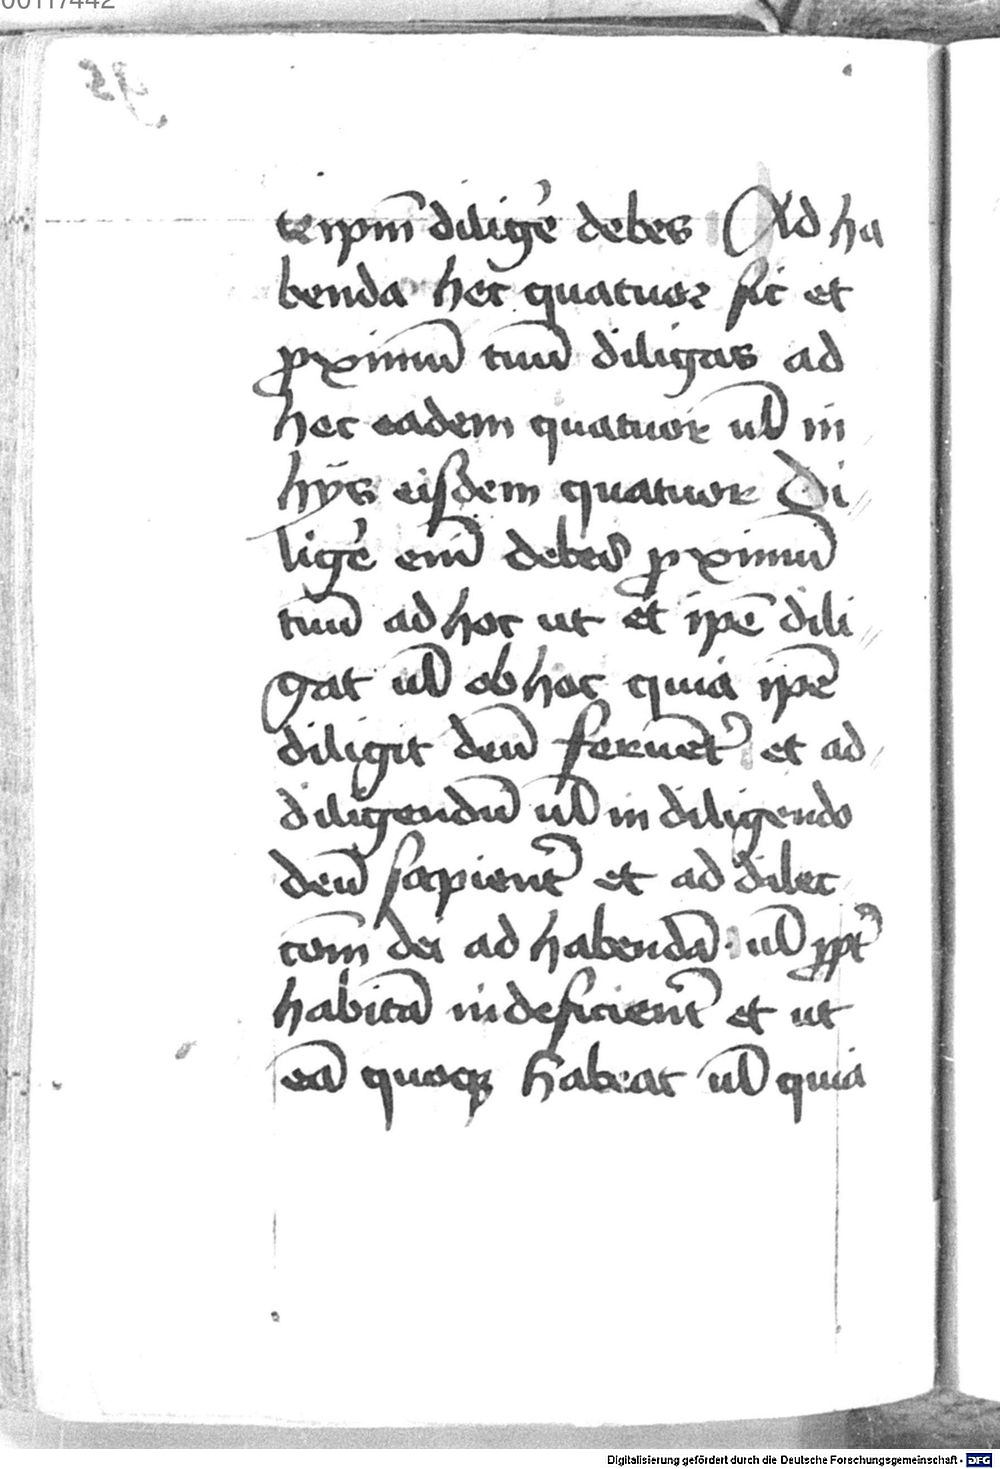 00117442
te ip̄m diligē debes Ad ha
benda hec quatuor sic et
ꝓximū tuū diligas ad
hec eadem quatuor ul̄ in
hijs eisdem quatuor Di
ligē enī debes ꝓximū
tuū ad hoc ut et ip̄e dili
gat ul̄ ob hoc quia ip̄e
diligit deū feruēt᷑ et ad
diligendū ul̄ in diligendo
deū sapient᷑ et ad dilec
tōem dei ad habendā ul̄ ꝓpt᷑
habitā indeficient᷑ et ut
eā quoqꝫ habeat ul̄ quia
Digitalisierung gefördert durch die Deutsche Forschungsgemeinschaft - DFG